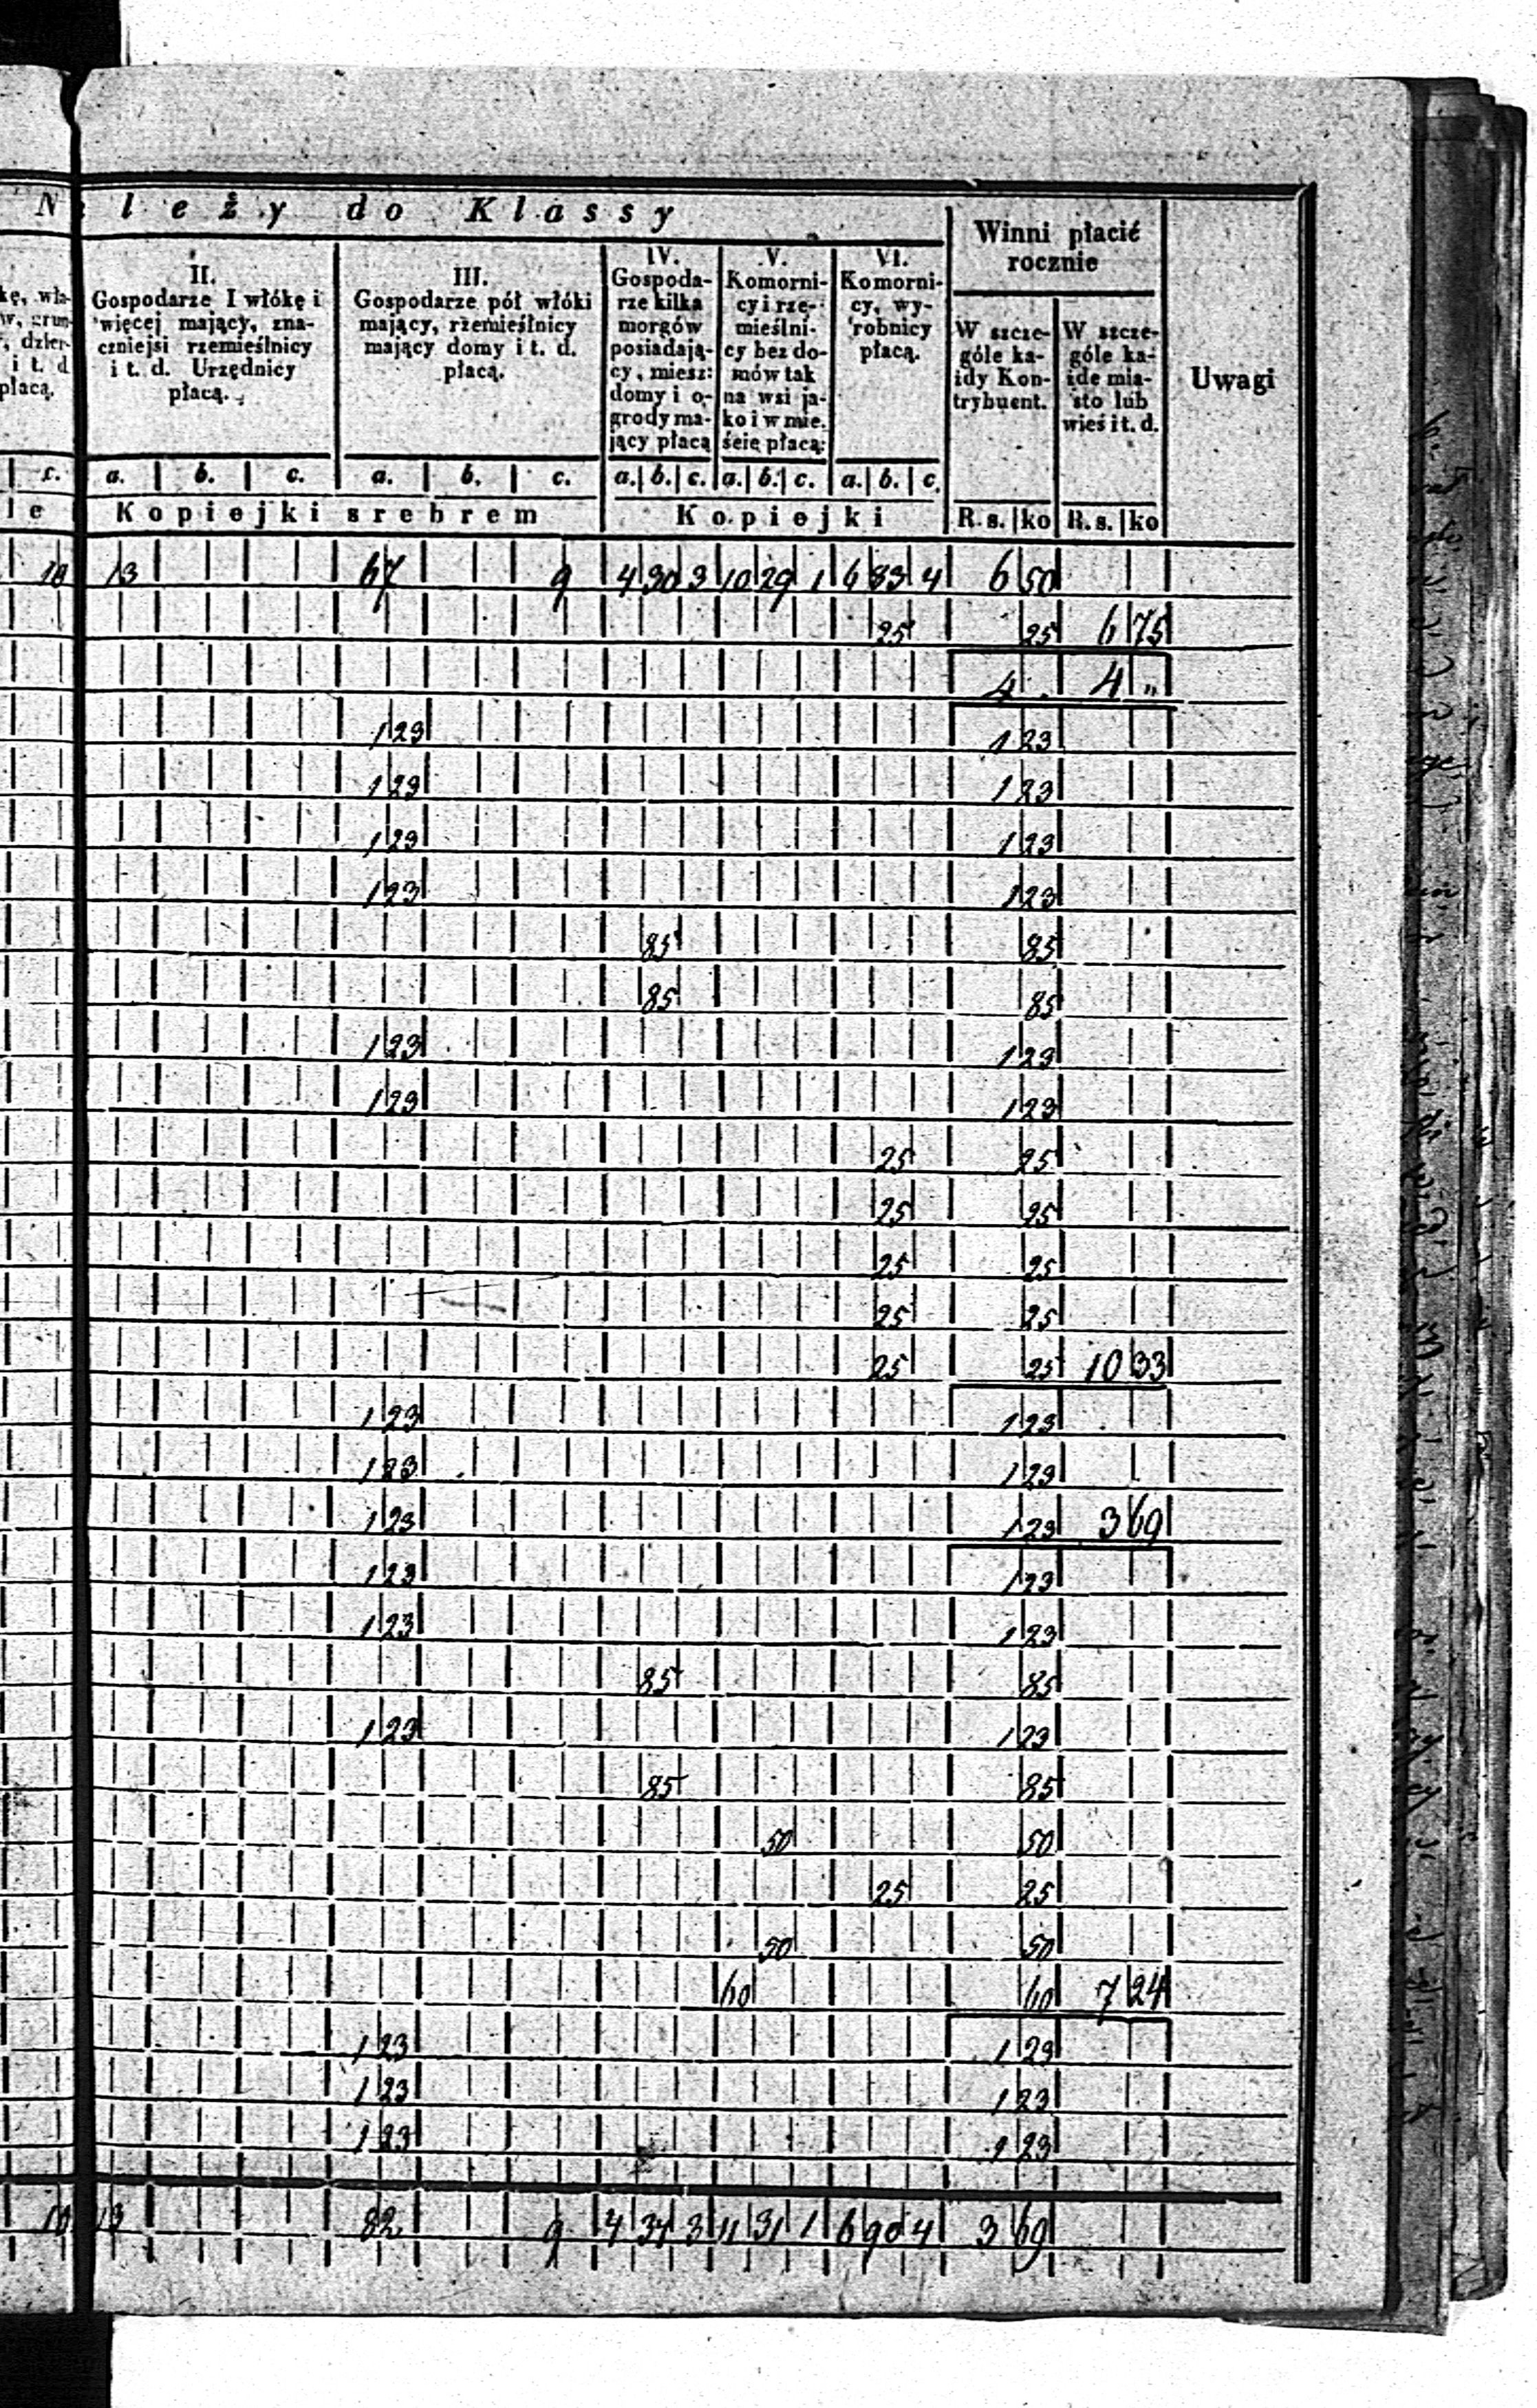 N leży do Klassy
Winni płacić rocznie
Uwagi
kę, wła-
w, grun-
, dzier-
i t. d
płacą.
II.
Gospodarze I włókę i
więcej mający, zna-
czniejsi rzemieślnicy
i t. d. Urzędnicy
płacą.
III.
Gospodarze pół włóki
mający, rzemieślnicy
mający domy i t. d.
płacą.
IV.
Gospoda-
rze kilka
morgów
posiadają-
cy, miesz:
domy i o-
grody ma-
jący płacą
V.
Komorni-
cy i rze-
mieślni-
cy bez do-
mów tak
na wsi ja-
ko i w mie.
ście płacą:
VI.
Komorni-
cy, wy-
robnicy
płacą.
W szcze-
góle ka-
żdy Kon-
trybuent.
W szcze-
góle ka-
żde mia-
sto lub
wieś i t. d.
c. a. b. c. a. b. c. a. b. c. a. b. c. a. b. c.
le Kopiejki srebrem Kopiejki R. s. ko R. s. ko
10 13 67 9 4 30 3 10 29 1 6 83 4 6 50
25 25 6 75
4 . 4 "
1 23 1 23
1 23 1 23
1 23 1 23
1 23 1 23
85 85
85 85
1 23 1 23
1 23 1 23
25 25
25 25
25 25
25 25
25 25 10 33
1 23 1 23
1 23 1 23
1 23 1 23 3 69
1 23 1 23
1 23 1 23
85 85
1 23 1 23
85 85
50 50
25 25
50 50
60 60 7 24
1 23 1 23
1 23 1 23
1 23 1 23
10 13 82 9 4 34 3 11 31 1 6 90 4 3 69